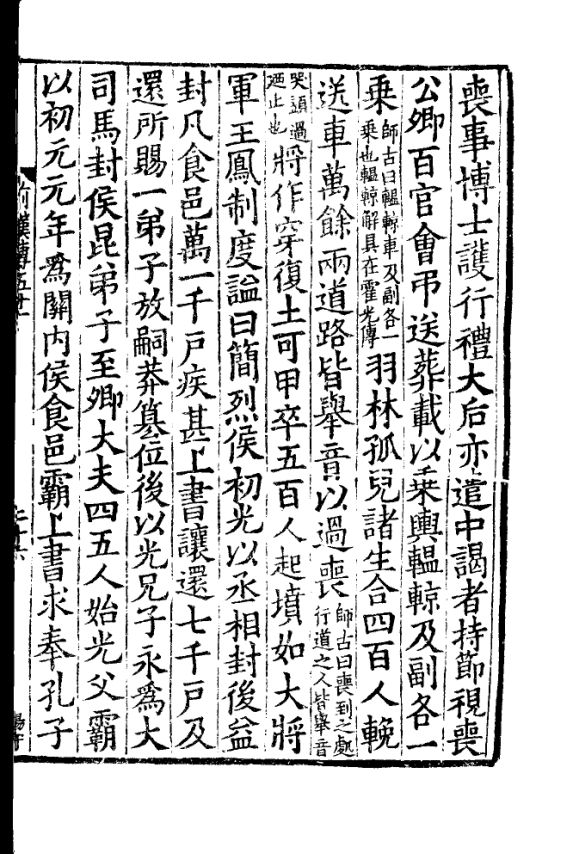 喪事博士護行禮大后亦遣中謁者持節視喪
公卿百官會弔送葬載以乗輿轀輬及副各一
乗師古曰轀輬車及副各一乗也轀輬解具在霍光傳羽林孤兒諸生合四百人輓
送車萬餘兩道路皆舉音以過喪師古曰喪到之處行道之人皆舉音
哭須過廼止也將作穿復土可甲卒五百人起墳如大將
軍王鳳制度謚曰簡烈侯初光以丞相封後益
封凡食邑萬一千戸疾甚上書讓還七千戸及
還所賜一弟子放嗣莽篡位後以光兄子永爲大
司馬封侯昆弟子至卿大夫四五人始光父霸
以初元元年爲關内侯食邑霸上書求奉孔子
前漢傳五十一